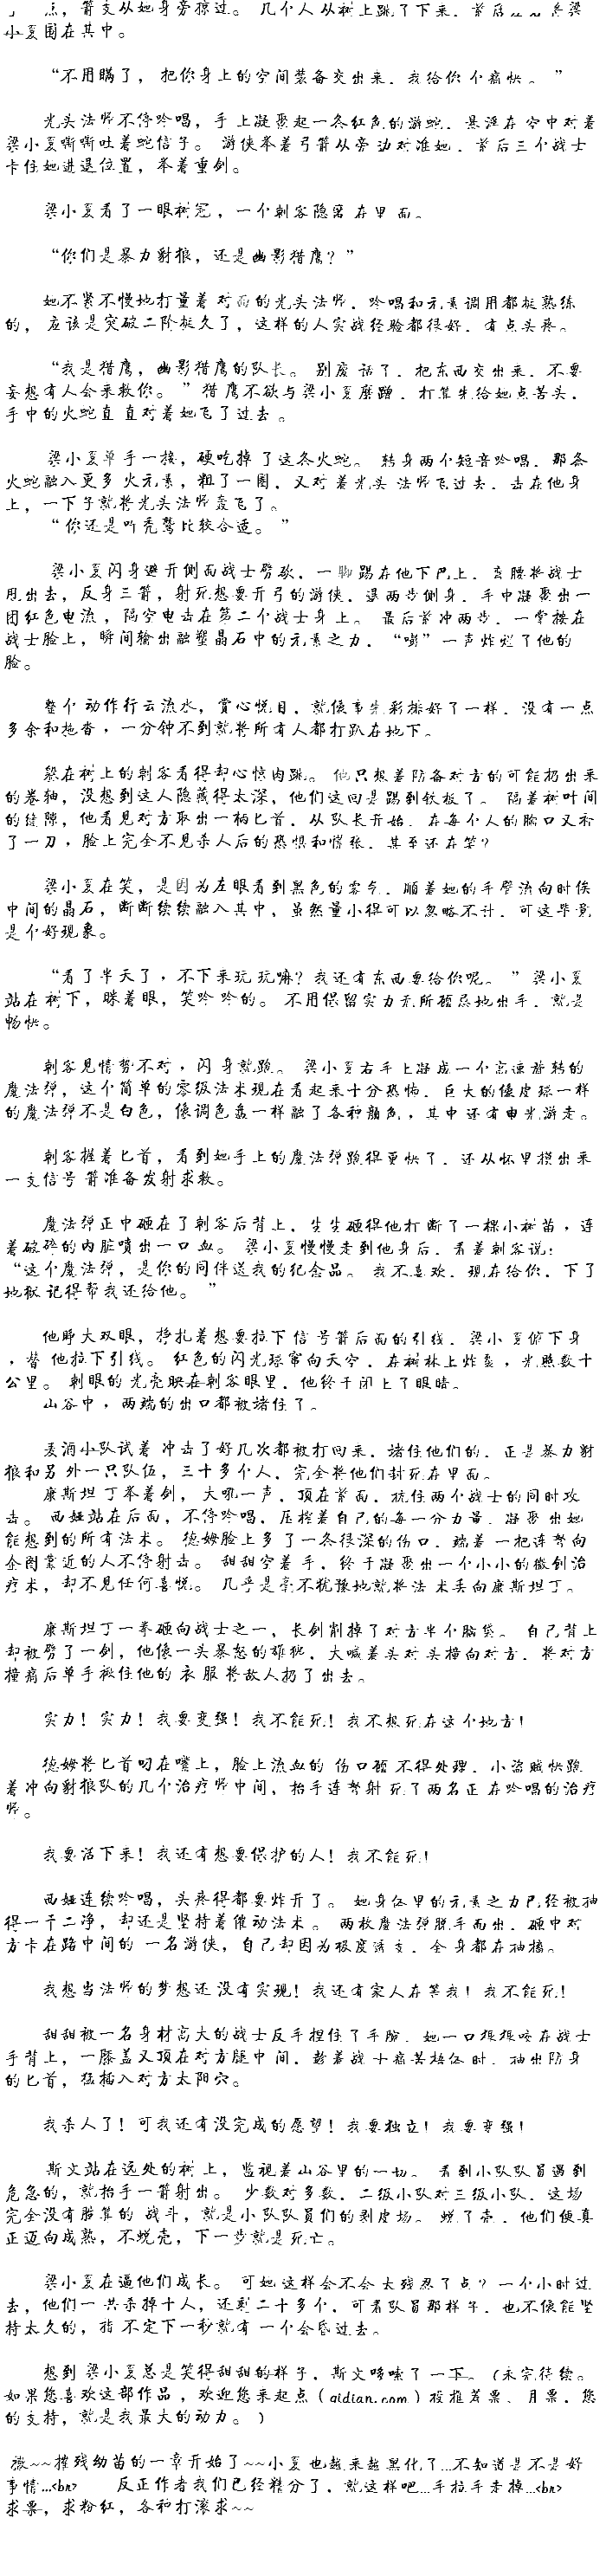 点，箭支从她身旁掠过。 几个人从树上跳了下来，前后
小夏围在其中。
“不用瞒了，把你身上的空间装备交出来，我给你个痛快。”
光头法师不停吟唱，手上凝聚起一条红色的游蛇，悬浮在空中对着
梁小夏嘶嘶吐着蛇信子。 游侠举着弓箭从旁边对准她，前后三个战士
卡住她进退位置，举着重剑。
梁小夏看了一眼树冠，一个刺客隐匿在里面。
“你们是暴力豺狼，还是幽影猎鹰？”
她不紧不慢地打量着对面的光头法师，吟唱和元素调用都挺熟练
的，应该是突破二阶挺久了，这样的人实战经验都很好，有点头疼。
“我是猎鹰，幽影猎鹰的队长。 别废话了，把东西交出来，不要
妄想有人会来救你。”猎鹰不欲与梁小夏磨蹭，打算先给她点苦头，
手中的火蛇直直对着她飞了过去。
梁小夏单手一接，硬吃掉了这条火蛇。 转身两个短音吟唱，那条
火蛇融入更多火元素，粗了一圈，又对着光头法师飞过去，击在他身
上，一下子就将光头法师轰飞了。
“你还是叫秃鹫比较合适。”
梁小夏闪身避开侧面战士劈砍，一脚踢在他下巴上，弯腰将战士
甩出去，反身三箭，射死想要开弓的游侠，退两步侧身，手中凝聚出一
团红色电流，隔空电击在第二个战士身上。 最后前冲两步，一掌接在
战士脸上，瞬间输出融塑晶石中的元素之力，“嘭”一声炸烂了他的
脸。
整个动作行云流水，赏心悦目，就像事先彩排好了一样，没有一点
多余和拖沓，一分钟不到就将所有人都打趴在地下。
躲在树上的刺客看得却心惊肉跳。 他只想着防备对方的可能扔出来
的卷轴，没想到这人隐藏得太深，他们这回是踢到铁板了。 隔着树叶间
的缝隙，他看见对方取出一柄匕首，从队长开始，在每个人的胸口又补
了一刀，脸上完全不见杀人后的恐惧和慌张，甚至还在笑？
梁小夏在笑，是因为左眼看到黑色的雾气，顺着她的手臂流向时俟
中间的晶石，断断续续融入其中，虽然量小得可以忽略不计，可这毕竟
是个好现象。
“看了半天了，不下来玩玩嘛？我还有东西要给你呢。”梁小夏
站在树下，眯着眼，笑吟吟的。 不用保留实力无所顾忌地出手，就是
畅快。
刺客见情势不对，闪身就跑。 梁小夏右手上凝成一个高速旋转的
魔法弹，这个简单的零级法术现在看起来十分恐怖，巨大的像皮球一样
的魔法弹不是白色，像调色盘一样融了各种颜色，其中还有电光游走。
刺客握着匕首，看到她手上的魔法弹跑得更快了，还从怀里摸出来
一支信号箭准备发射求救。
魔法弹正中砸在了刺客后背上，生生砸得他打断了一棵小树苗，连
着破碎的内脏喷出一口血。 梁小夏慢慢走到他身后，看着刺客说：
“这个魔法弹，是你的同伴送我的纪念品。 我不喜欢，现在给你，下了
地狱记得帮我还给他。”
他睁大双眼，挣扎着想要拉下信号箭后面的引线，梁小夏俯下身
，替他拉下引线。 红色的闪光球窜向天空，在树林上炸裂，光照数十
公里。 刺眼的光亮映在刺客眼里，他终于闭上了眼睛。
山谷中，两端的出口都被堵住了。
麦酒小队试着冲击了好几次都被打回来，堵住他们的，正是暴力豺
狼和另外一只队伍，三十多个人，完全将他们封死在里面。
康斯坦丁举着剑，大吼一声，顶在前面，抗住两个战士的同时攻
击。 西娅站在后面，不停吟唱，压榨着自己的每一分力量，凝聚出她
能想到的所有法术。 德姆脸上多了一条很深的伤口，端着一把连弩向
企图靠近的人不停射击。 甜甜空着手，终于凝聚出一个小小的微创治
疗术，却不见任何喜悦。 几乎是毫不犹豫地就将法术丢向康斯坦丁。
康斯坦丁一拳砸向战士之一，长剑削掉了对方半个脑袋。 自己背上
却被劈了一剑，他像一头暴怒的雄狮，大喊着头对头撞向对方，将对方
撞痛后单手抓住他的衣服将敌人扔了出去。
实力！实力！我要变强！我不能死！我不想死在这个地方！
德姆将匕首叼在嘴上，脸上流血的伤口顾不得处理，小盗贼快跑
着冲向豺狼队的几个治疗师中间，抬手连弩射死了两名正在吟唱的治疗
师。
我要活下来！我还有想要保护的人！我不能死！
西娅连续吟唱，头疼得都要炸开了。 她身体里的元素之力已经被抽
得一干二净，却还是坚持着催动法术。 两枚魔法弹脱手而出，砸中对
方卡在路中间的一名游侠，自己却因为极度透支，全身都在抽搐。
我想当法师的梦想还没有实现！我还有家人在等我！我不能死！
甜甜被一名身材高大的战士反手捏住了手腕，她一口狠狠咬在战士
手背上，一膝盖又顶在对方腿中间，趁着战士痛苦接低时，抽出防身
的匕首，猛插入对方太阳穴。
我杀人了！可我还有没完成的愿望！我要独立！我要变强！
斯文站在远处的树上，监视着山谷里的一切。 看到小队队员遇到
危急的，就抬手一箭射出。 少数对多数，二级小队对三级小队，这场
完全没有胜算的战斗，就是小队队员们的剥皮场。 蜕了壳，他们便真
正迈向成熟，不蜕壳，下一步就是死亡。
梁小夏在逼他们成长。 可她这样会不会太残忍了点？一个小时过
去，他们一共杀掉十人，还剩二十多个，可看队员那样子，也不像能坚
持太久的，指不定下一秒就有一个会昏过去。
想到梁小夏总是笑得甜甜的样子，斯文哆嗦了一下。（未完待续。
如果您喜欢这部作品，欢迎您来起点（qidian.com）投推荐票、月票，您
的支持，就是我最大的动力。）
~~摧残幼苗的一章开始了~~小夏也越来越黑化了...不知道是不是好
事情...<br> 反正作者我们已经精分了，就这样吧...手拉手走掉...<br>
求票，求粉红，各种打滚求~~